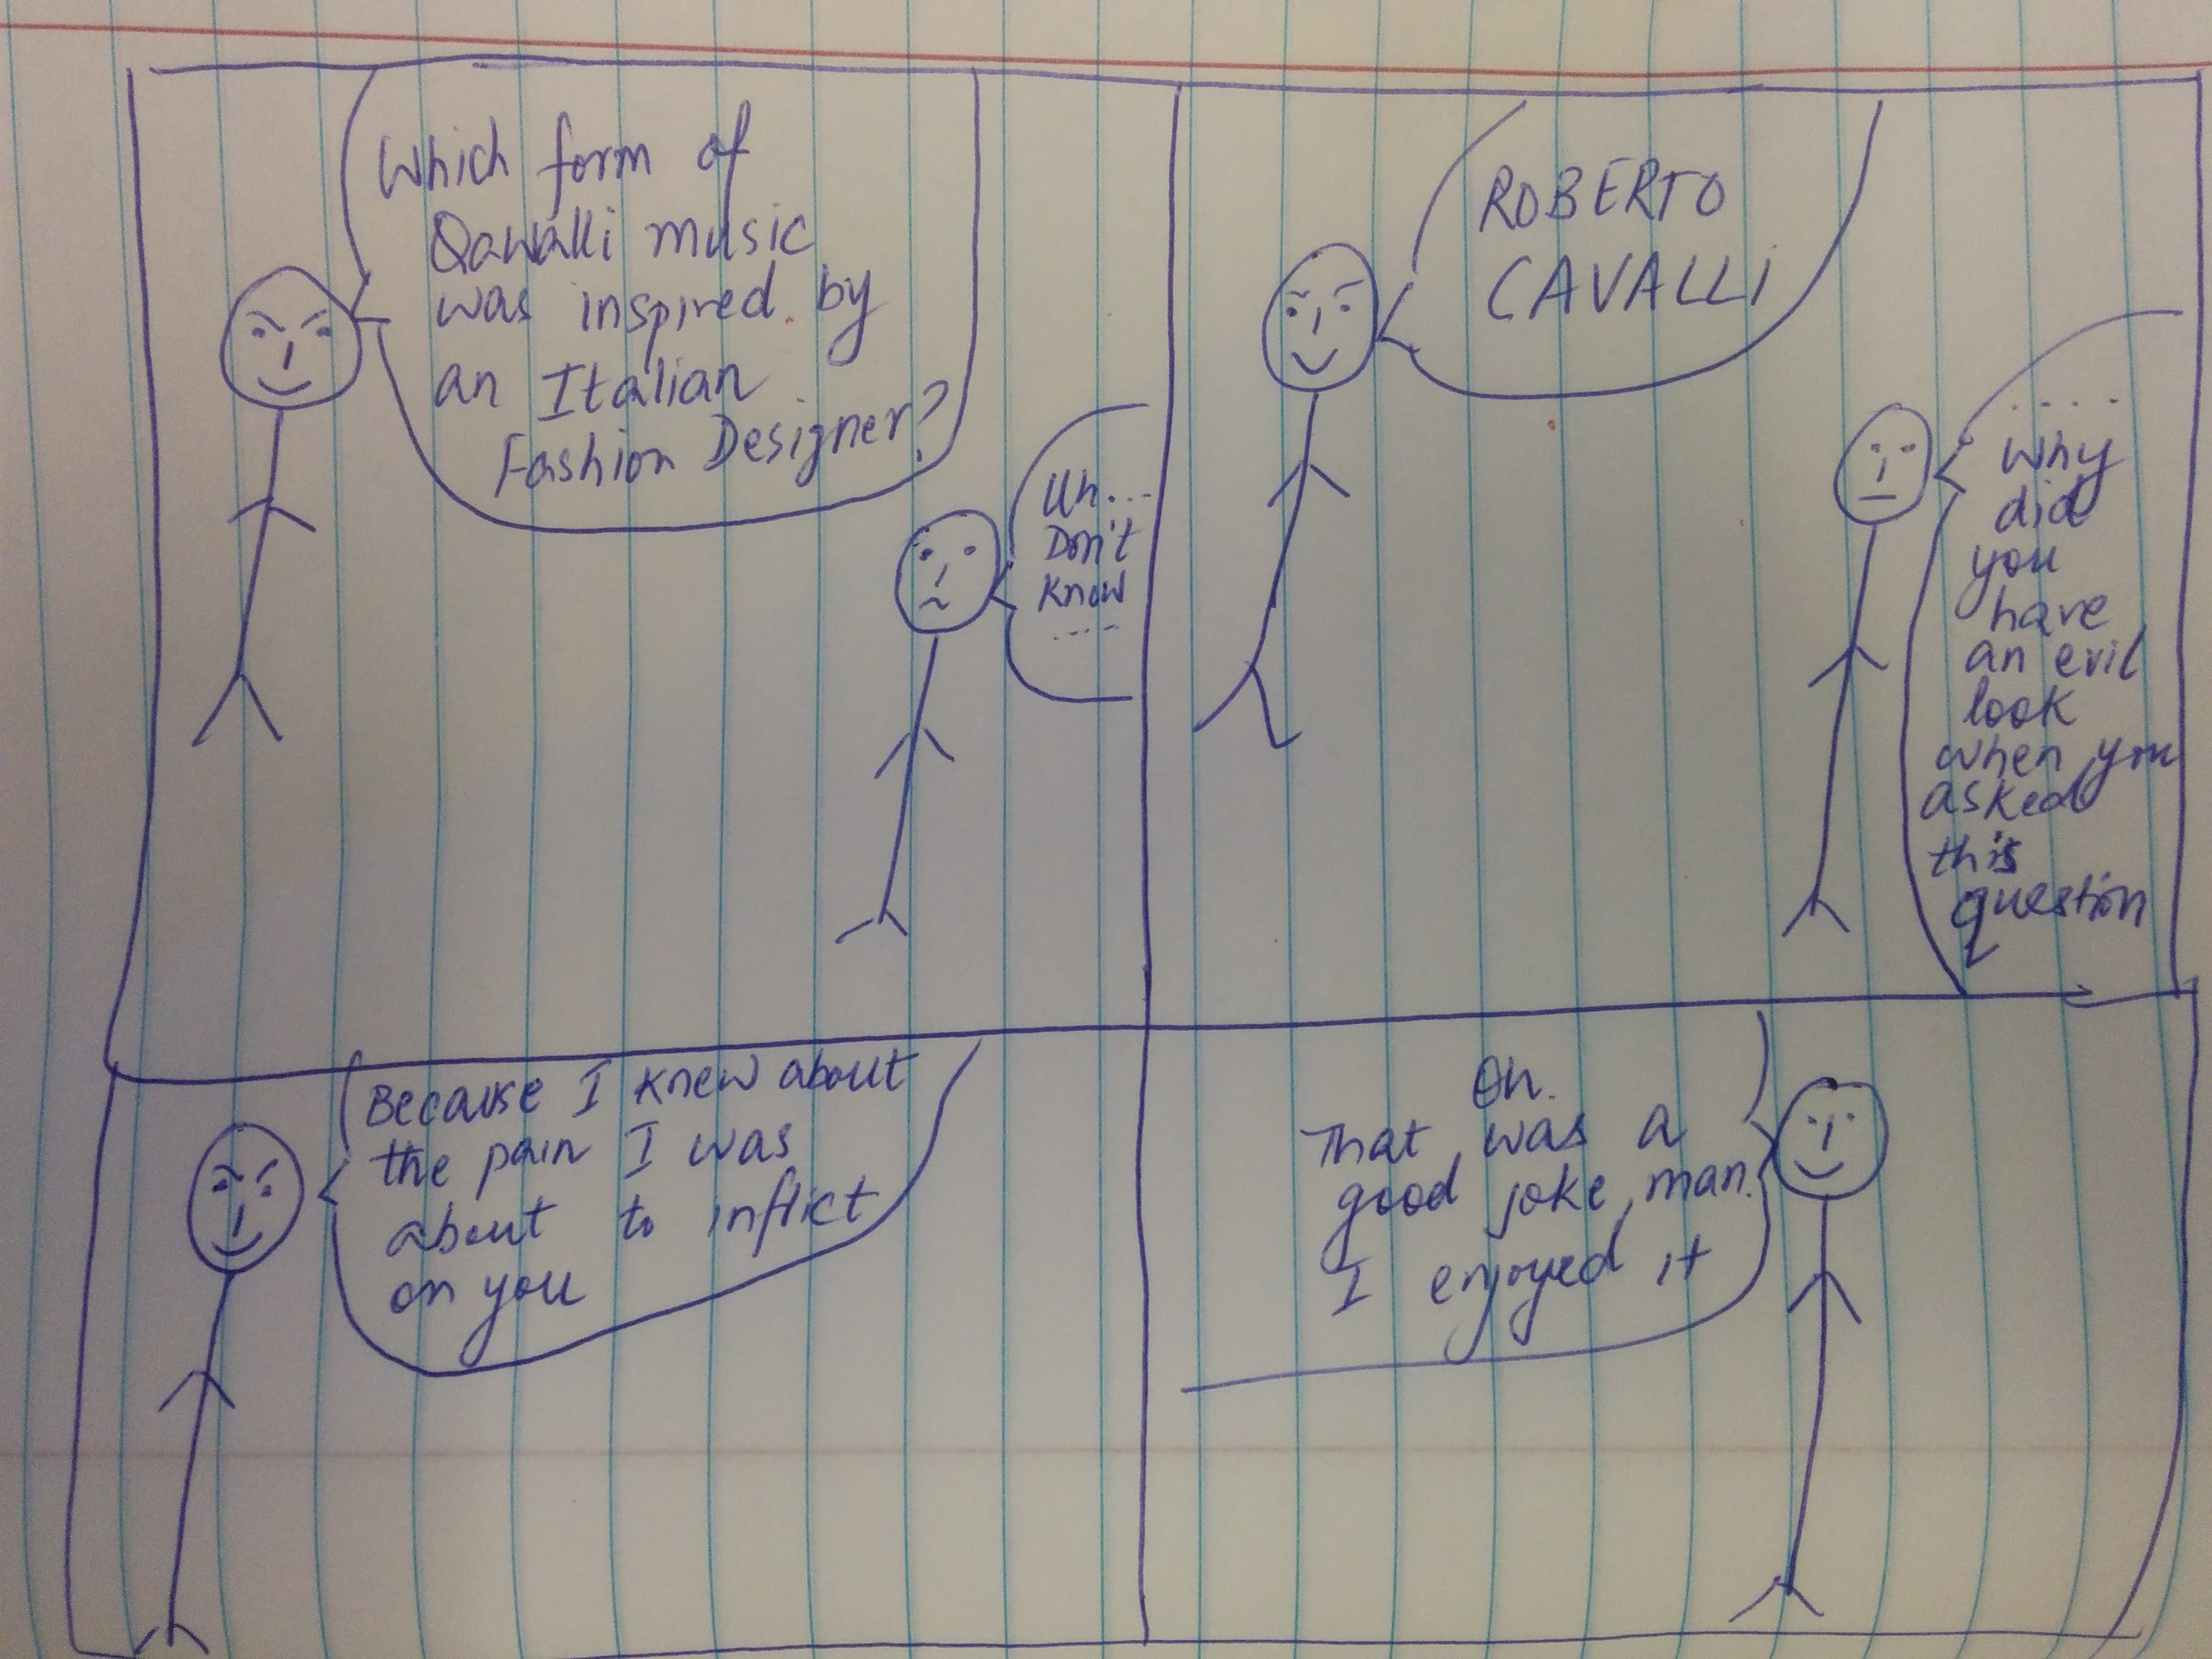 Which form of
Qawalli music
was inspired by
an Italian
Fashion Designer?
Uh...
Don't
know
....
ROBERTO
CAVALLI
.....
why
did
you
have
an evil
look
when you
asked
this
question
Because I knew about
the pain I was
about to inflict
on you
Oh.
That was a
good joke man.
I enjoyed it